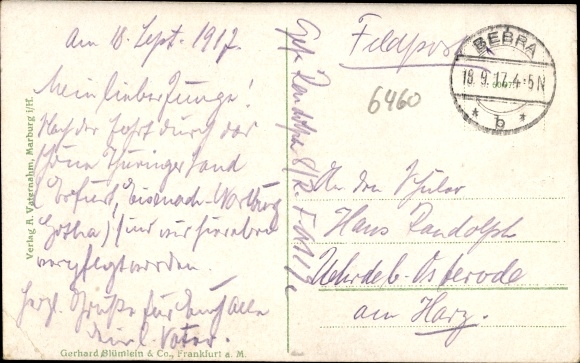 Am 18. Sept. 1917.
Mein lieber Junge!
Nach der Fahrt durch das
schöne Thüringer Land
(Erfurt, Eisenach-Wartburg
Gotha) sind wir hier eben
verpflegt worden.
Herzl. Grüße für Euch Alle
Dein l. Vater.
Verlag A. Vaternahm, Marburg i/H.
Gerhard Blümlein & Co., Frankfurt a. M.
Randolph
Feldpost
BEBRA
18.9.17.4-5N
* b *
6460
An den Schüler
Hans Randolph
Uehrde b. Osterode
am Harz.